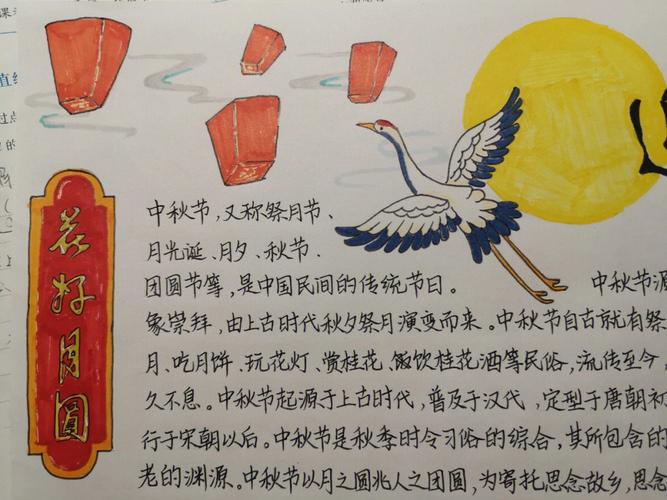 花好月圆
中秋节，又称祭月节、
月光诞、月夕、秋节、
团圆节等，是中国民间的传统节日。 中秋节源
象崇拜，由上古时代秋夕祭月演变而来。中秋节自古就有祭
月、吃月饼、玩花灯、赏桂花、饮桂花酒等民俗，流传至今，
久不息。中秋节起源于上古时代，普及于汉代，定型于唐朝初
行于宋朝以后。中秋节是秋季时令习俗的综合，其所包含的
老的渊源。中秋节以月之圆兆人之团圆，为寄托思念故乡，思念